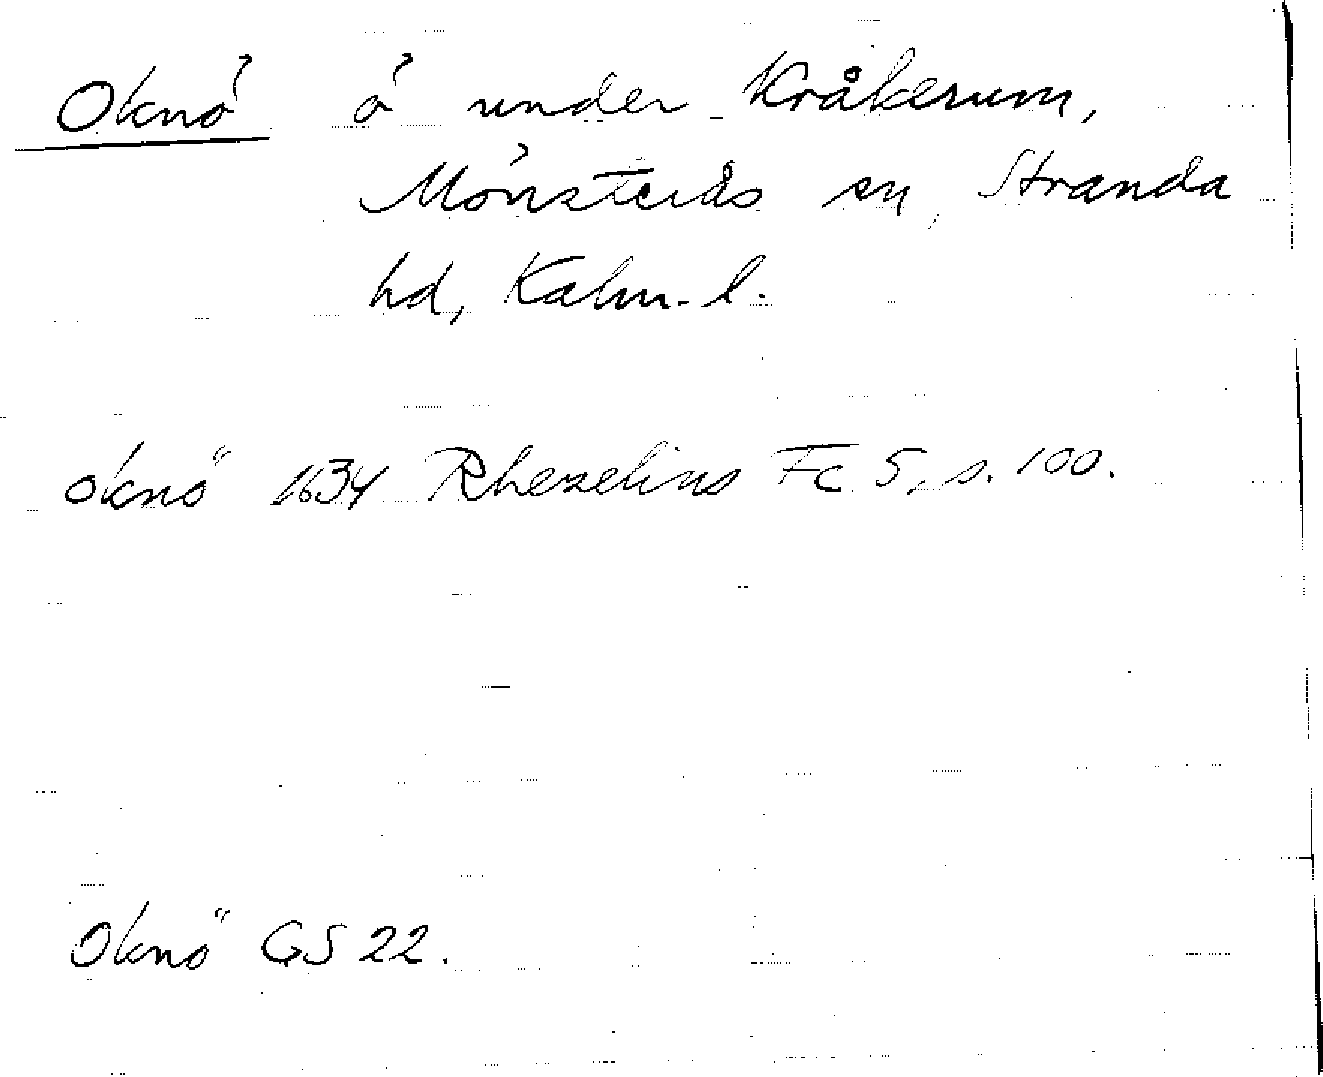 Oknö ö under Kråkerum,
Mönsterås sn, Stranda
hd, Kalm. l.
oknö 1634 Rhezelius Fc 5, s. 100.
Oknö GS 22.